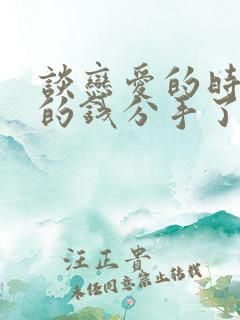 談戀愛的時
的錢分手了
汪正貴
未任同意禁止轉載